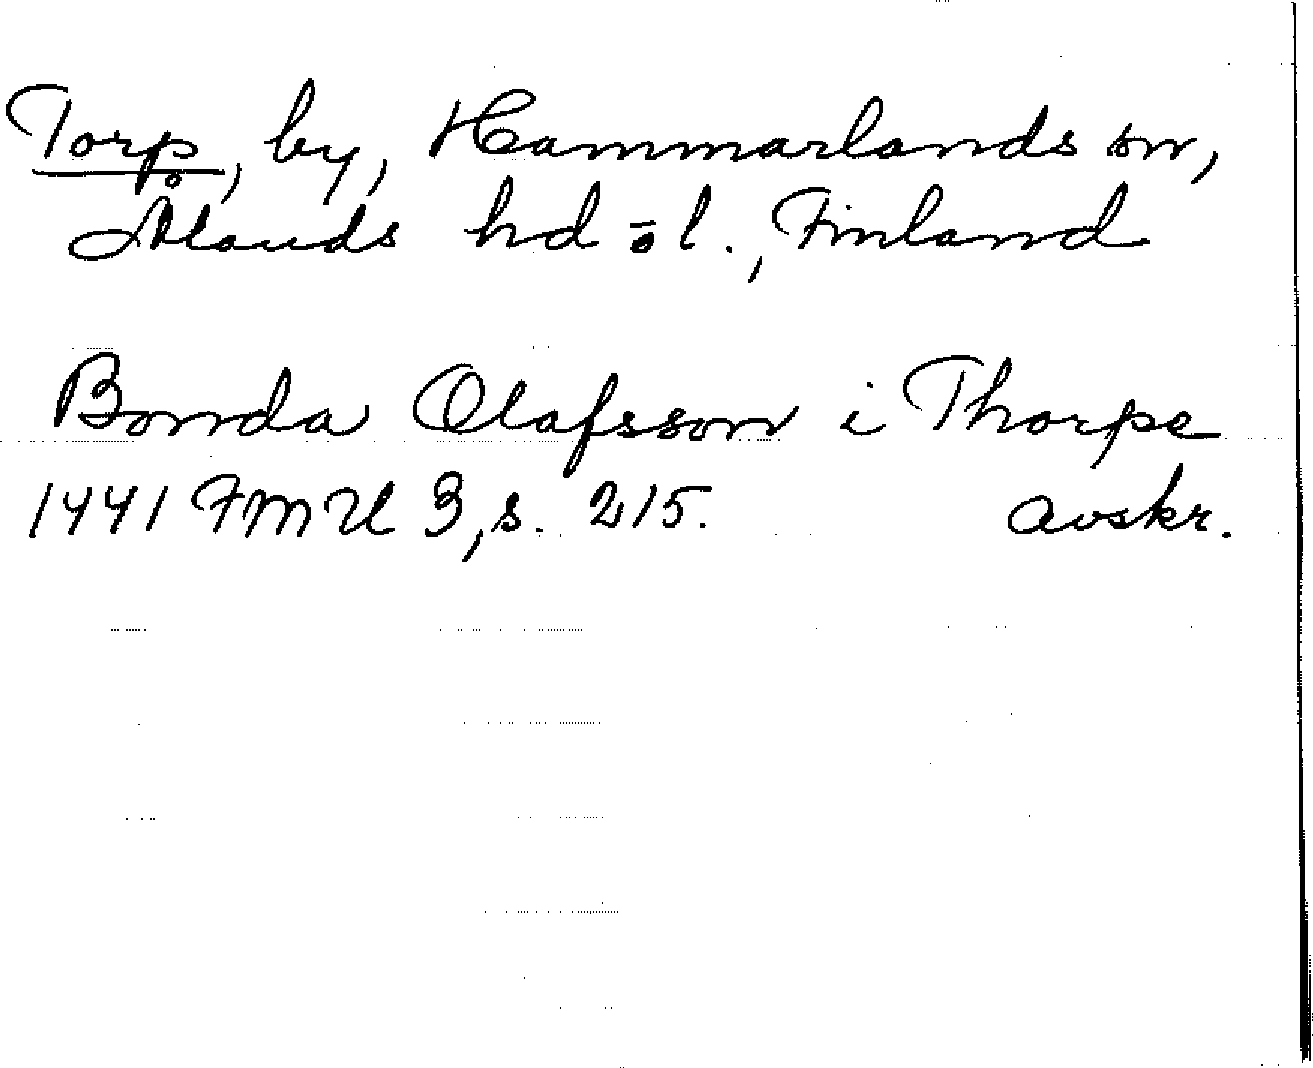 Torp, by, Hammarlands sn,
Ålands hd o l., Finland
Bonda Olafsson i Thorpe
1441 FMU 3, s. 215. avskr.